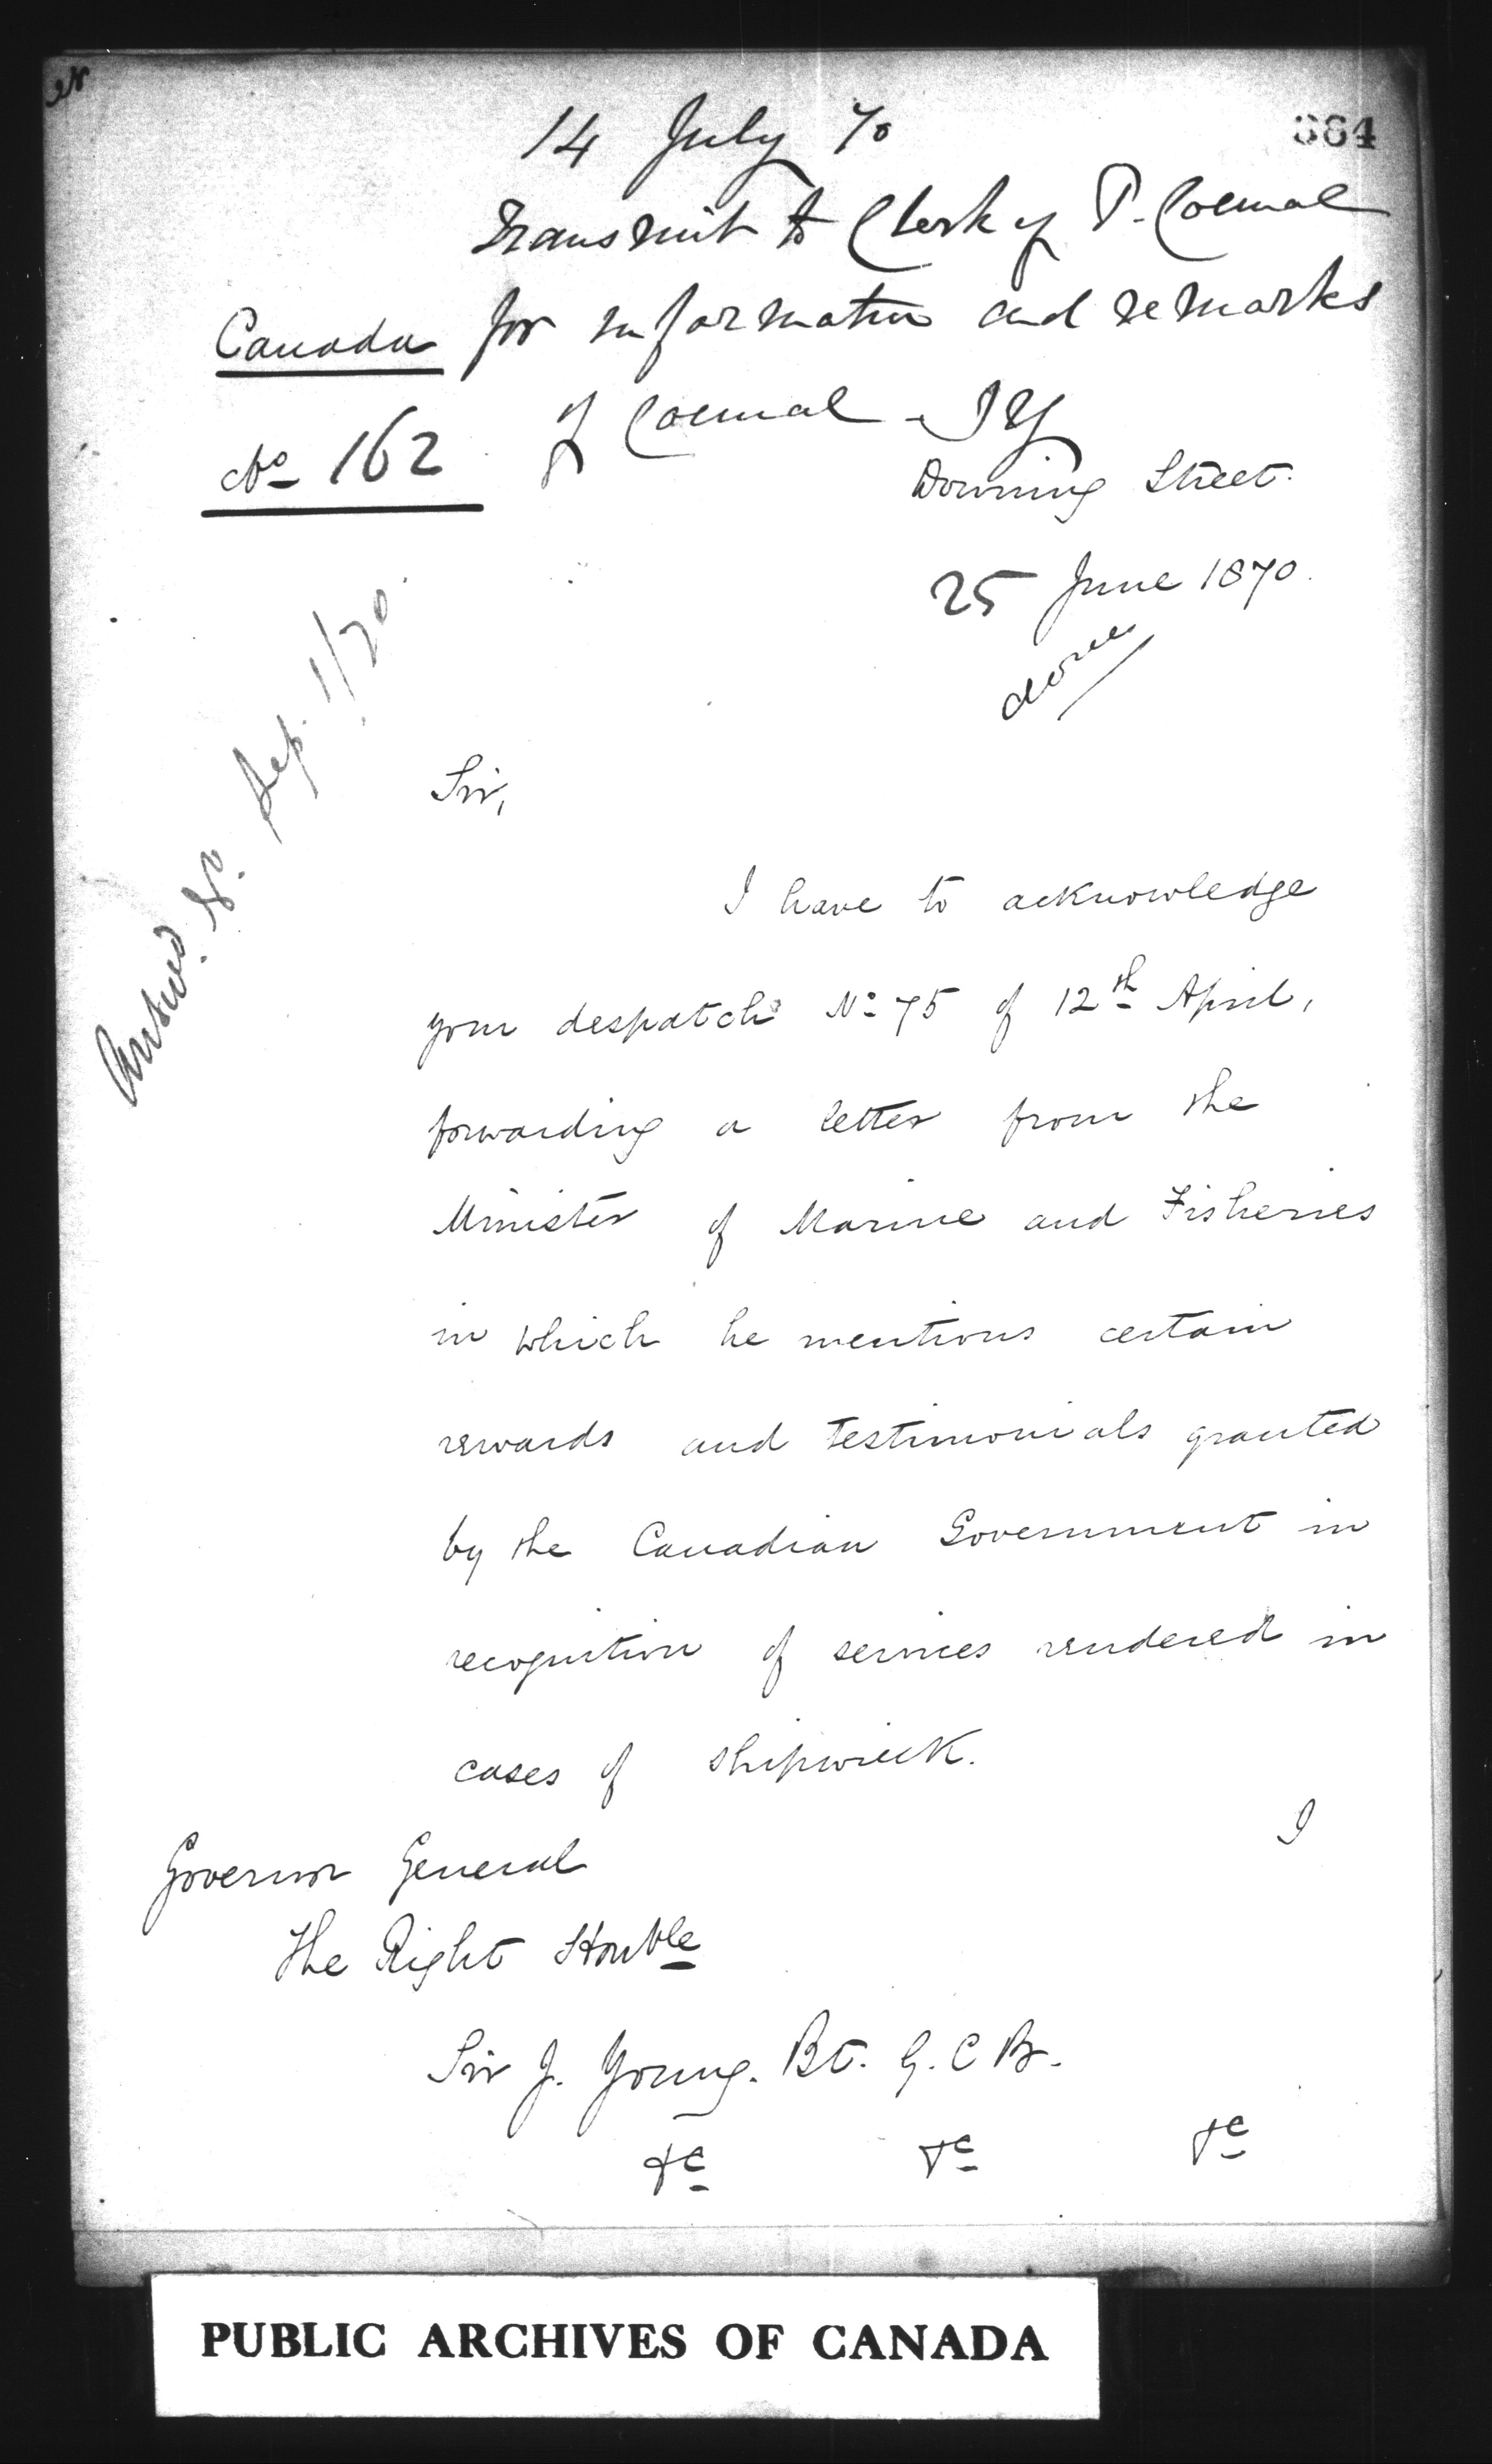 884
14 July 70
Transmit to Clerk of P. Council
for information and remarks
of Council - JY
Canada
No 162
Downing Street.
25 June 1870.
done
Answd. Sep. 1/70.
Sir,
I have to acknowledge
your despatch No 75 of 12th April,
forwarding a letter from the
Minister of Marine and Fisheries
in which he mentions certain
rewards and testimonials granted
by the Canadian Government in
recognition of services rendered in
cases of shipwreck.
I
Governor General
The Right Honble
Sir J. Young. Bt. G.C.B.
&c &c &c
PUBLIC ARCHIVES OF CANADA